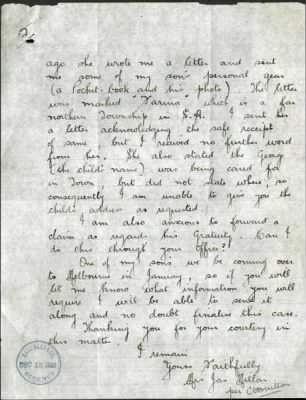 2.
ago she wrote me a letter and sent
me some of my son's personal gear
(a Pocket-book and his photo). This letter
was marked "Farina" which is a far
northern Township in S.A. I sent her
a letter acknowledging the safe receipt
of same, but I received no further word
from her. She also stated the George
(the child's name) was being cared for
in Town, but did not state where, so
consequently I am unable to give you the
child's address as requested.
I am also anxious to forward a
claim as regards this Gratuity. Can I
do this through your Office?
One of my sons we be coming over
to Melbourne in January, so if you will
let me know what information you will
require I will be able to send it
along and no doubt finalise this case.
Thanking you for your courtesy in
this matter.
I remain
Yours Faithfully
Mrs Jas Millar
per
DEC 13
RECEIVED